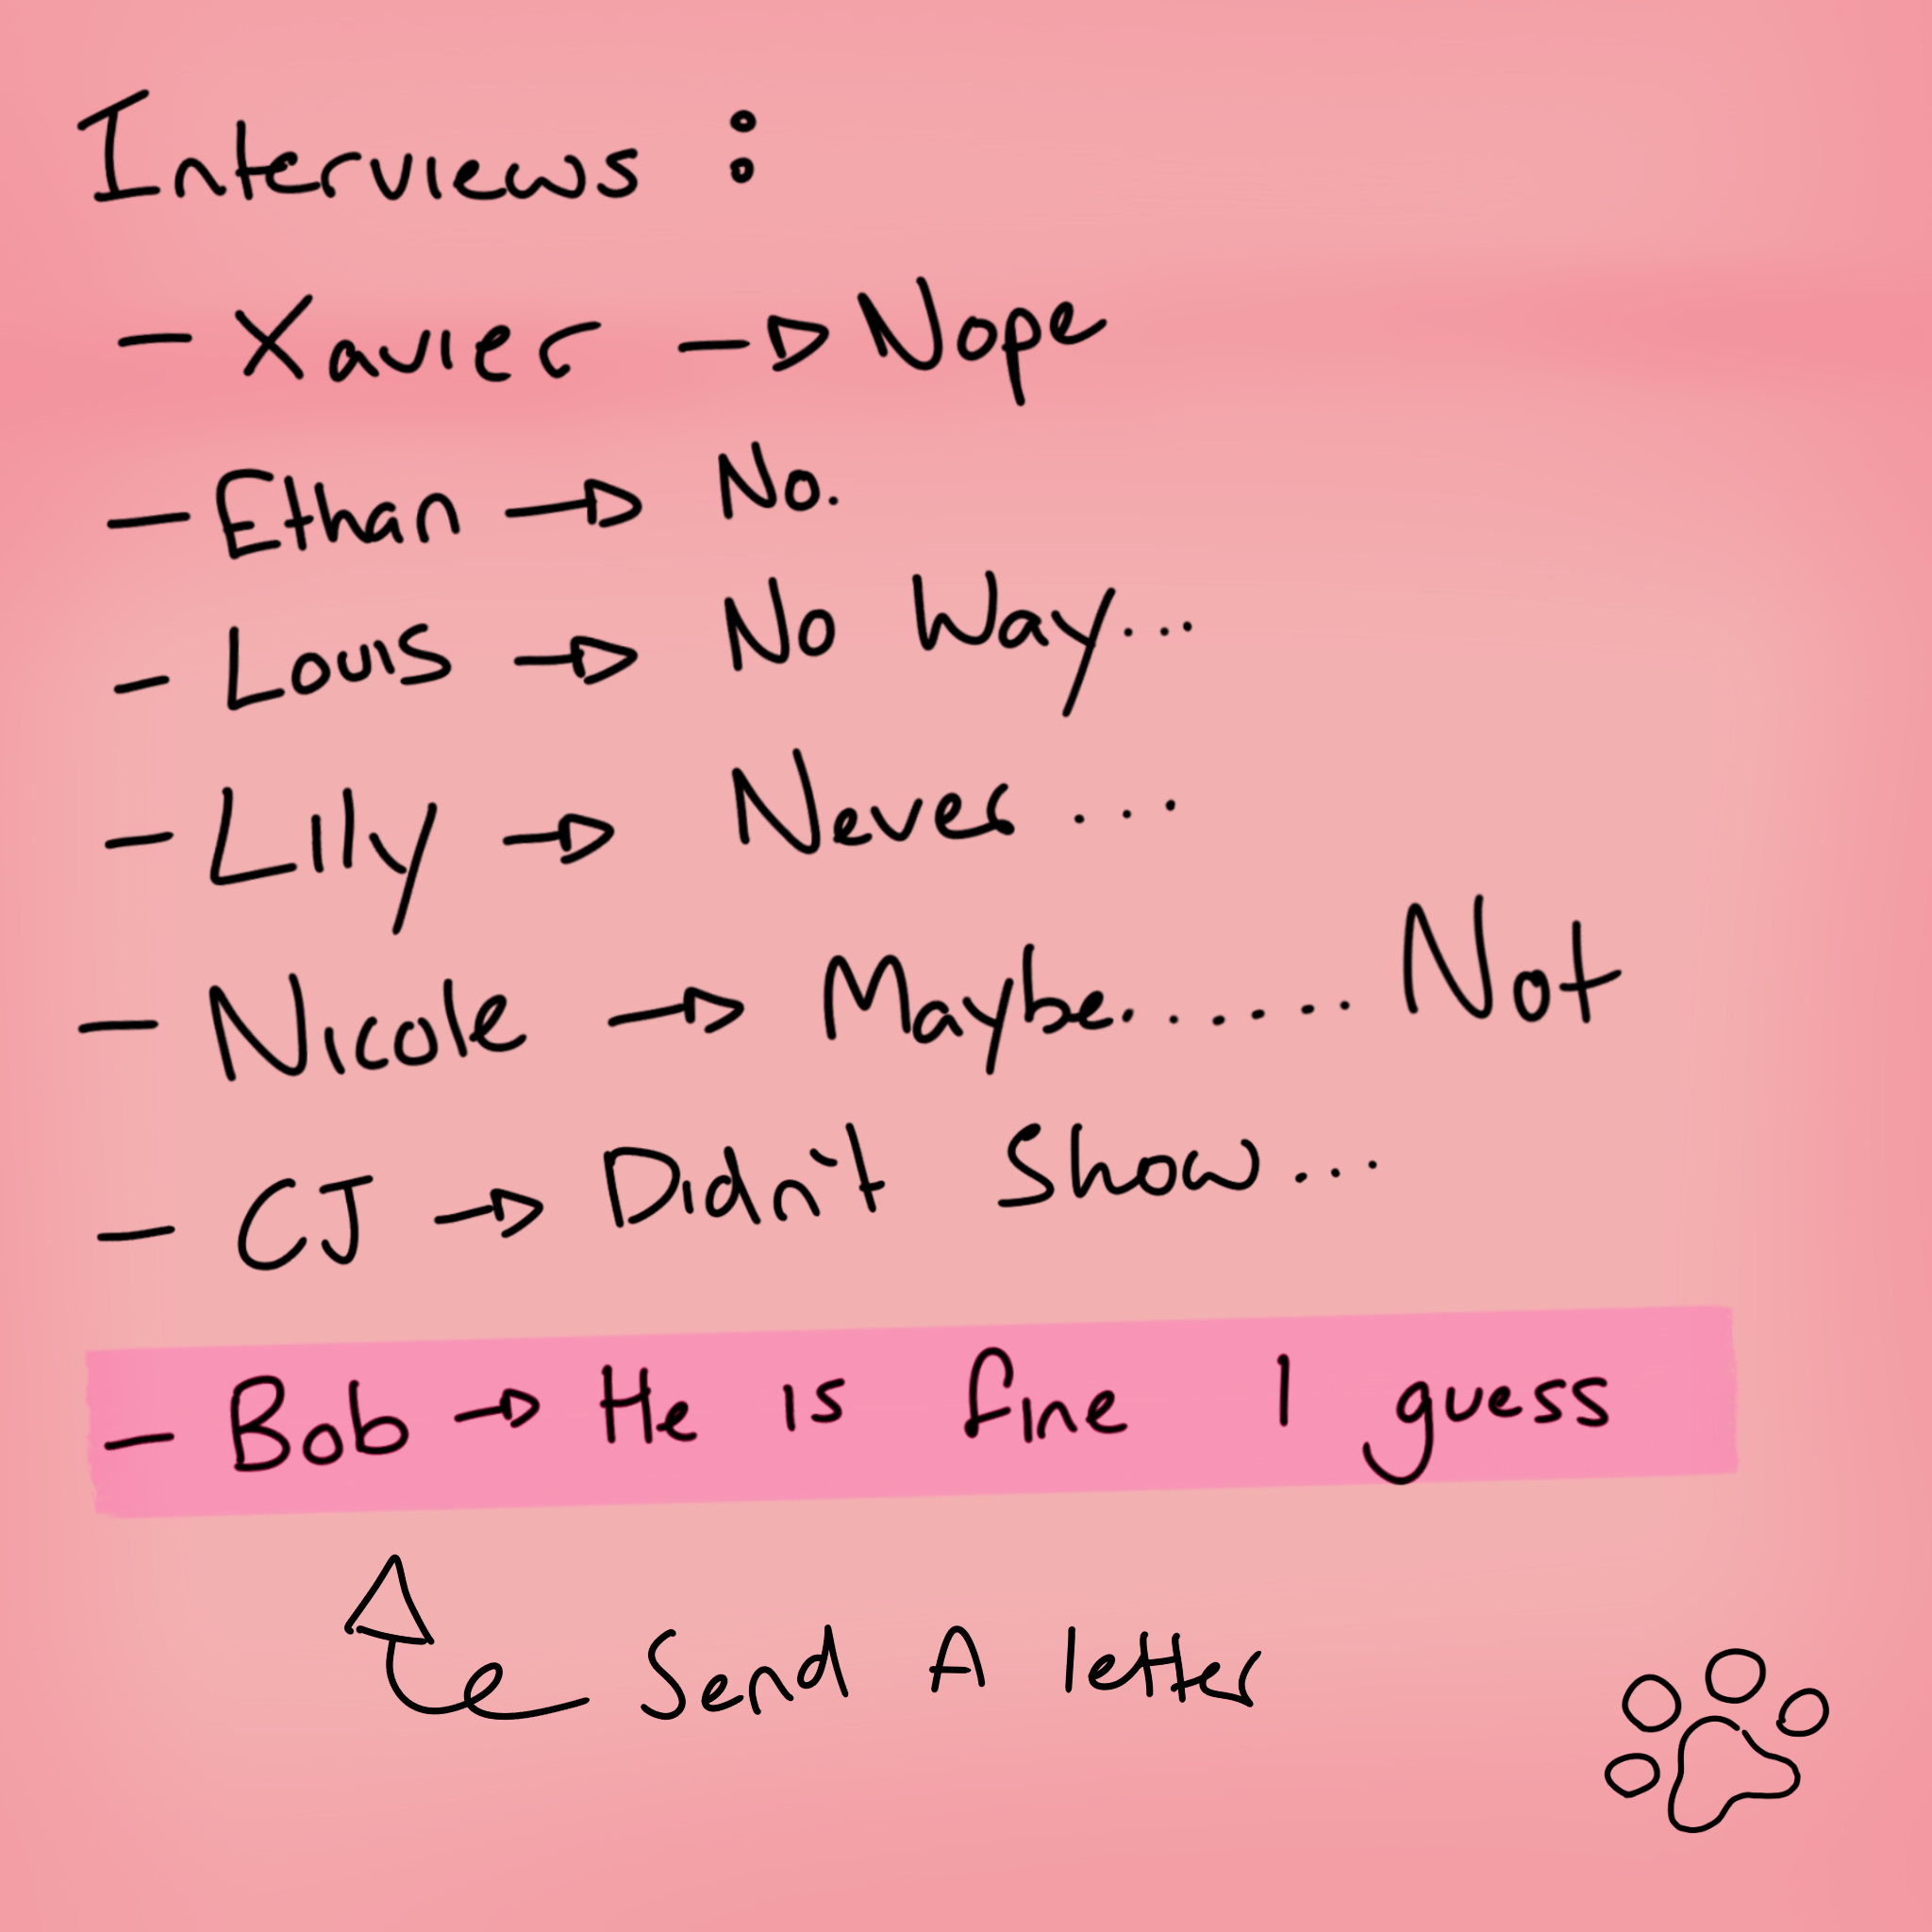 Interviews :
- Xavier → Nope
- Ethan → No.
- Louis → No Way...
- Lilly → Never...
- Nicole → Maybe...... Not
- CJ → Didn't Show...
- Bob → He is fine I guess
Send A letter